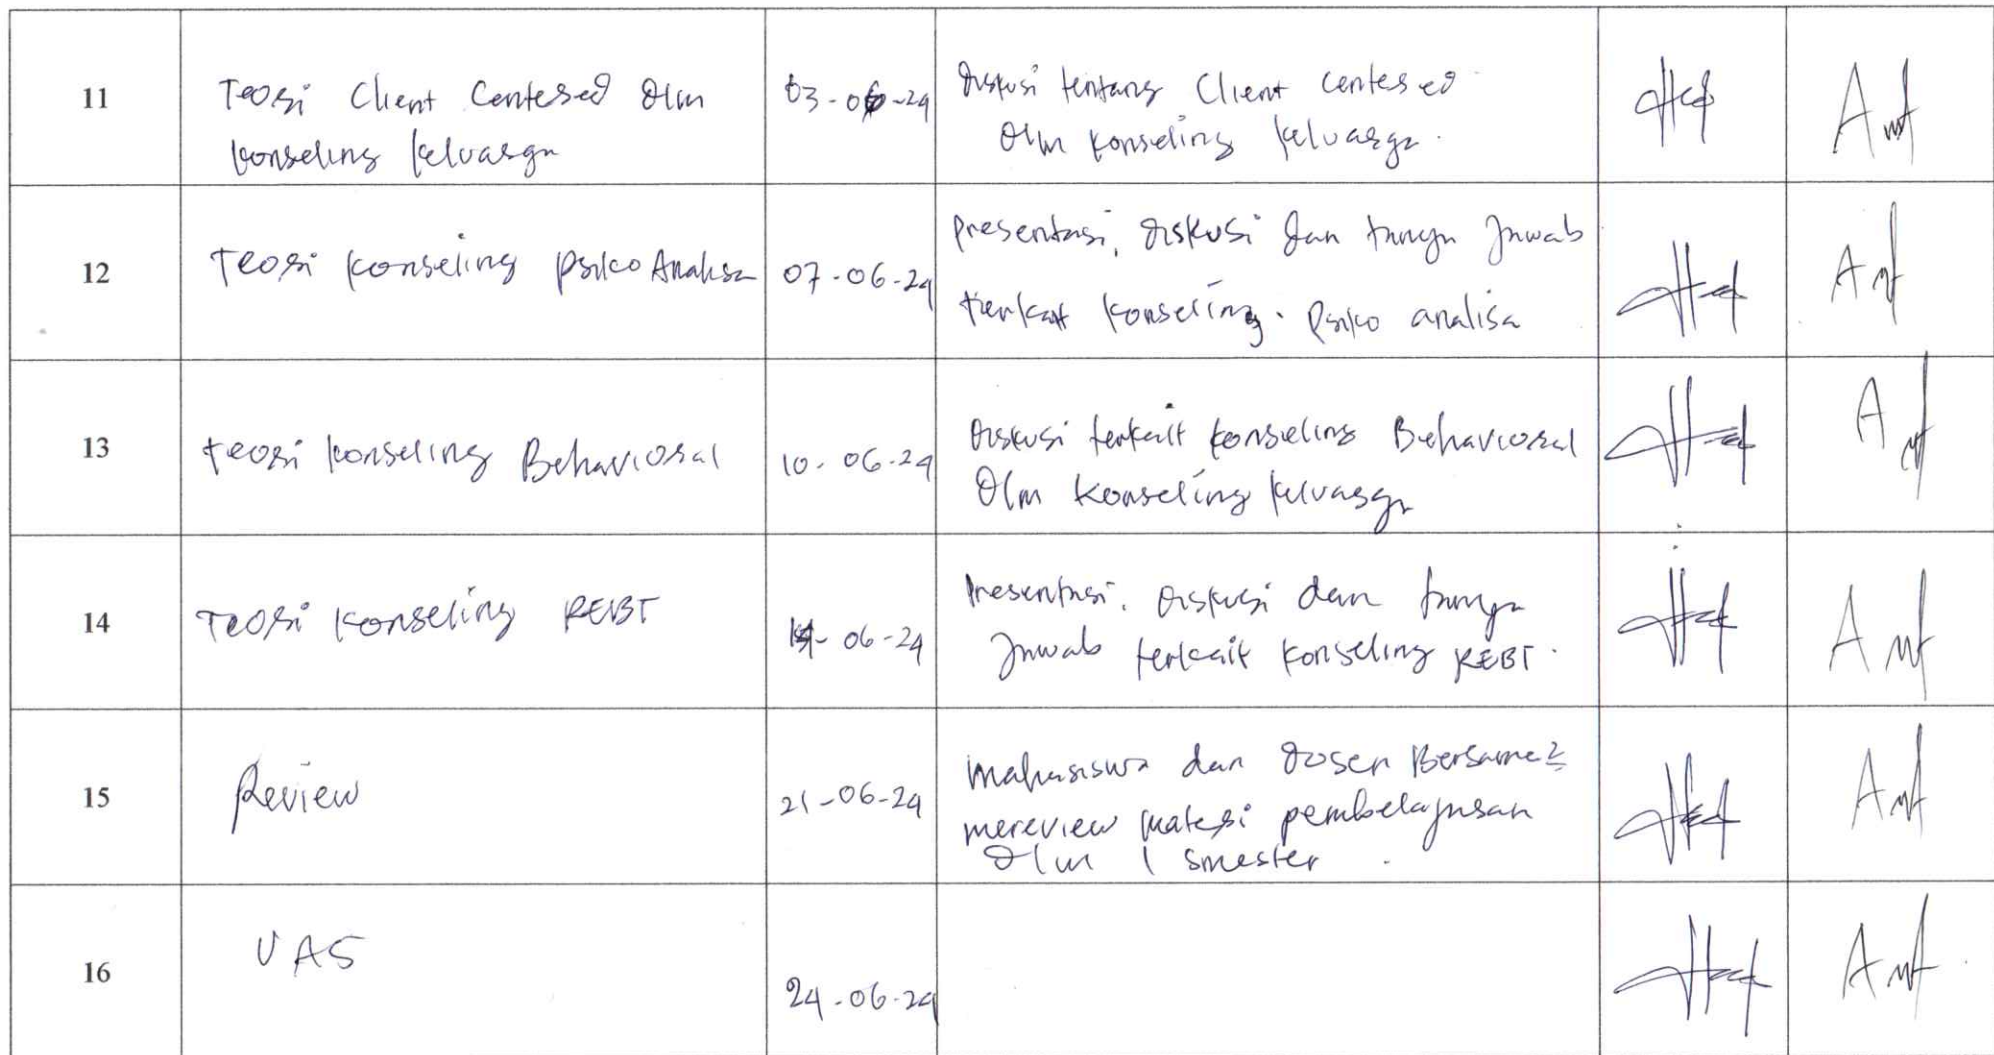 11
Teori Client Centered dlm
konseling keluarga
03-06-24
diskusi tentang Client centered
dlm konseling keluarga.
12
Teori konseling psiko Analisa
07-06-24
presentasi, diskusi dan tanya Jawab
terkait konseling. psiko analisa
13
teori konseling Behavioral
10-06-24
Diskusi terkait konseling Behavioral
dlm konseling keluarga
14
Teori konseling REBT
06-24
Presentasi, diskusi dan tanya
Jawab terkait konseling REBT.
15
Review
21-06-24
mahasiswa dan dosen Bersama2
mereview materi pembelajaran
dlm 1 smester.
16
UAS
24-06-24